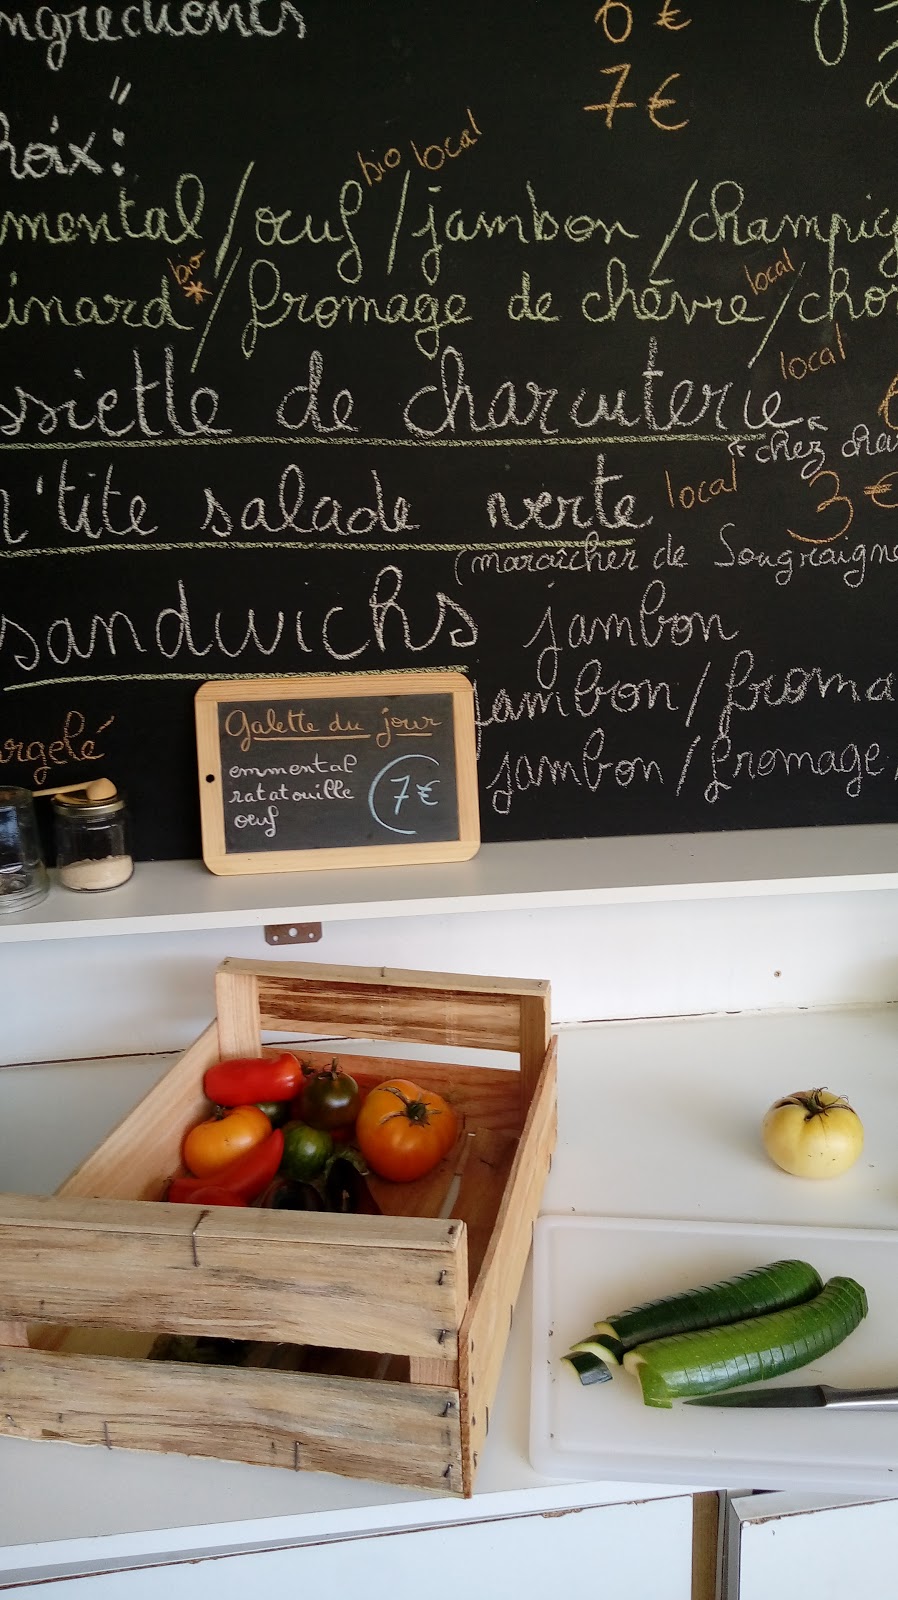 ngrédients 6€
7€
hoix":
bio local
mmental/oeuf/jambon/champig
bio local
inard*/fromage de chèvre/chor
local
ssiette de charcuterie
"chez char
n'tite salade verte local 3€
(maraîcher de Sougraigne
sandwichs jambon
jambon/froma
argelé
jambon/fromage/
Galette du jour
emmental
ratatouille 7€
oeuf